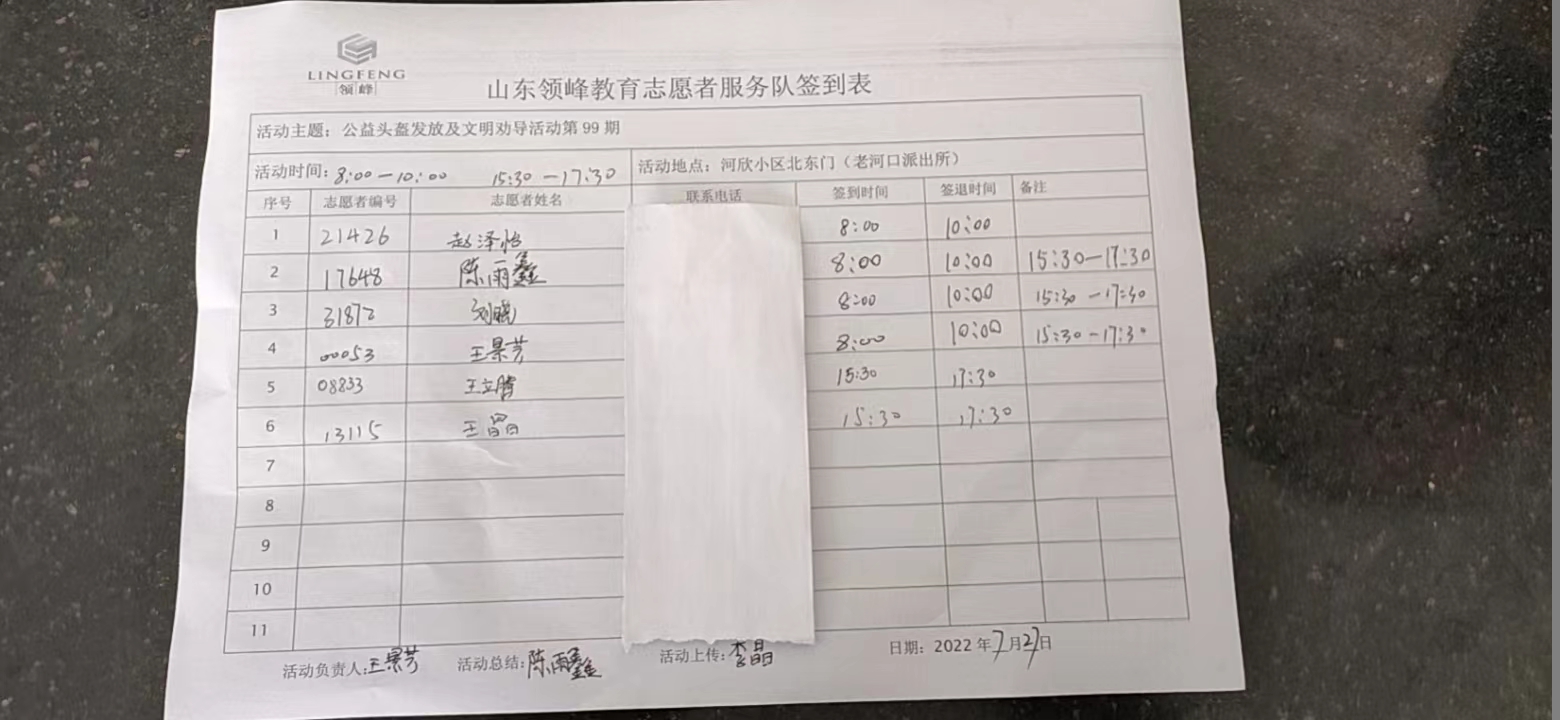 LINGFENG
领峰
山东领峰教育志愿者服务队签到表
活动主题：公益头盔发放及文明劝导活动第 99 期
活动时间：8:00—10:00 15:30—17:30 活动地点：河欣小区北东门（老河口派出所）
序号 志愿者编号 志愿者姓名 联系电话 签到时间 签退时间 备注
1 21426 赵泽怡 8:00 10:00
2 17648 陈雨鑫 8:00 10:00 15:30—17:30
3 31872 刘晓 8:00 10:00 15:30—17:30
4 00053 王景芳 8:00 10:00 15:30—17:30
5 08833 王立 15:30 17:30
6 13115 王 15:30 17:30
7
8
9
10
11
活动负责人：王景芳 活动总结：陈雨鑫 活动上传：李晶 日期：2022 年 7 月 27 日